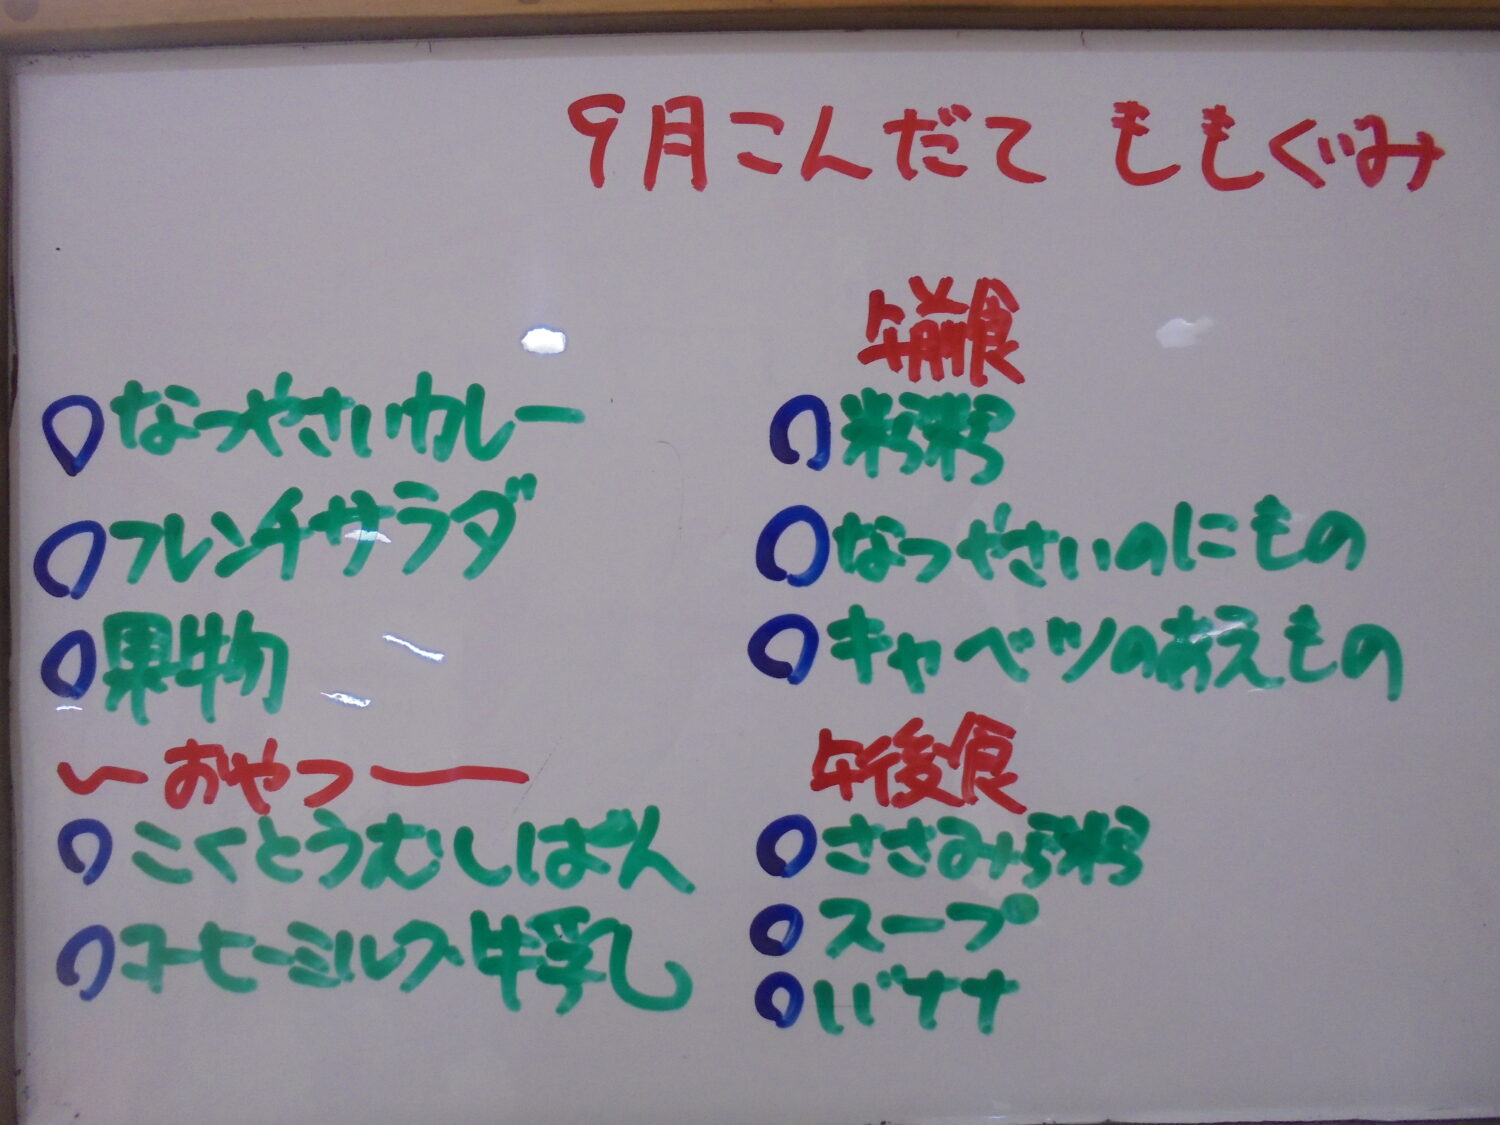 9月こんだて ももぐみ
なつやさいカレー
フレンチサラダ
果物
おやつ
こくとうむしぱん
コーヒーミルク 牛乳
午前食
粥
なつやさいのにもの
キャベツのあえもの
午後食
ささみ粥
スープ
バナナ